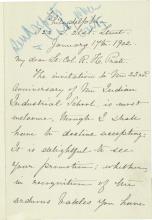 Philadelphia
21st Street
January 17th 1902
My dear Lt. Col. R. H. Pratt
The invitation to the 23rd
Anniversary of the Indian
Industrial School is most
welcome, though I shall
have to decline accepting.
It is delightful to see
your promotion; whether
in recognition of the
arduous battles you have